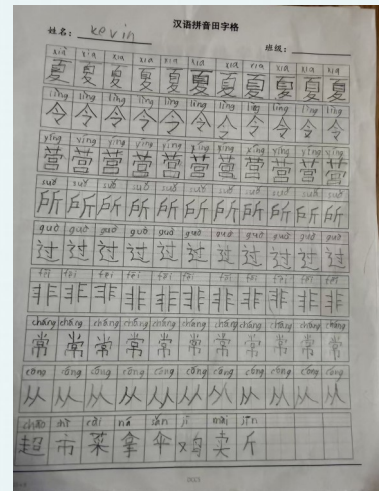 汉语拼音田字格
姓名： kevin 班级：
xià xià xià xià xià xià xià xià xià xià xià
夏 夏 夏 夏 夏 夏 夏 夏 夏 夏 夏
lìng lìng lìng lìng lìng lìng lìng lìng lìng lìng lìng
令 令 令 令 令 令 令 令 令 令 令
yíng yíng yíng yíng yíng yíng yíng yíng yíng yíng yíng
营 营 营 营 营 营 营 营 营 营 营
suǒ suǒ suǒ suǒ suǒ suǒ suǒ suǒ suǒ suǒ suǒ
所 所 所 所 所 所 所 所 所 所 所
guò guò guò guò guò guò guò guò guò guò guò
过 过 过 过 过 过 过 过 过 过 过
fēi fēi fēi fēi fēi fēi fēi fēi fēi fēi fēi
非 非 非 非 非 非 非 非 非 非 非
cháng cháng cháng cháng cháng cháng cháng cháng cháng cháng cháng
常 常 常 常 常 常 常 常 常 常 常
cóng cóng cóng cóng cóng cóng cóng cóng cóng cóng cóng
从 从 从 从 从 从 从 从 从 从 从
chāo shì cài ná sǎn jī mài jīn
超 市 菜 拿 伞 鸡 卖 斤